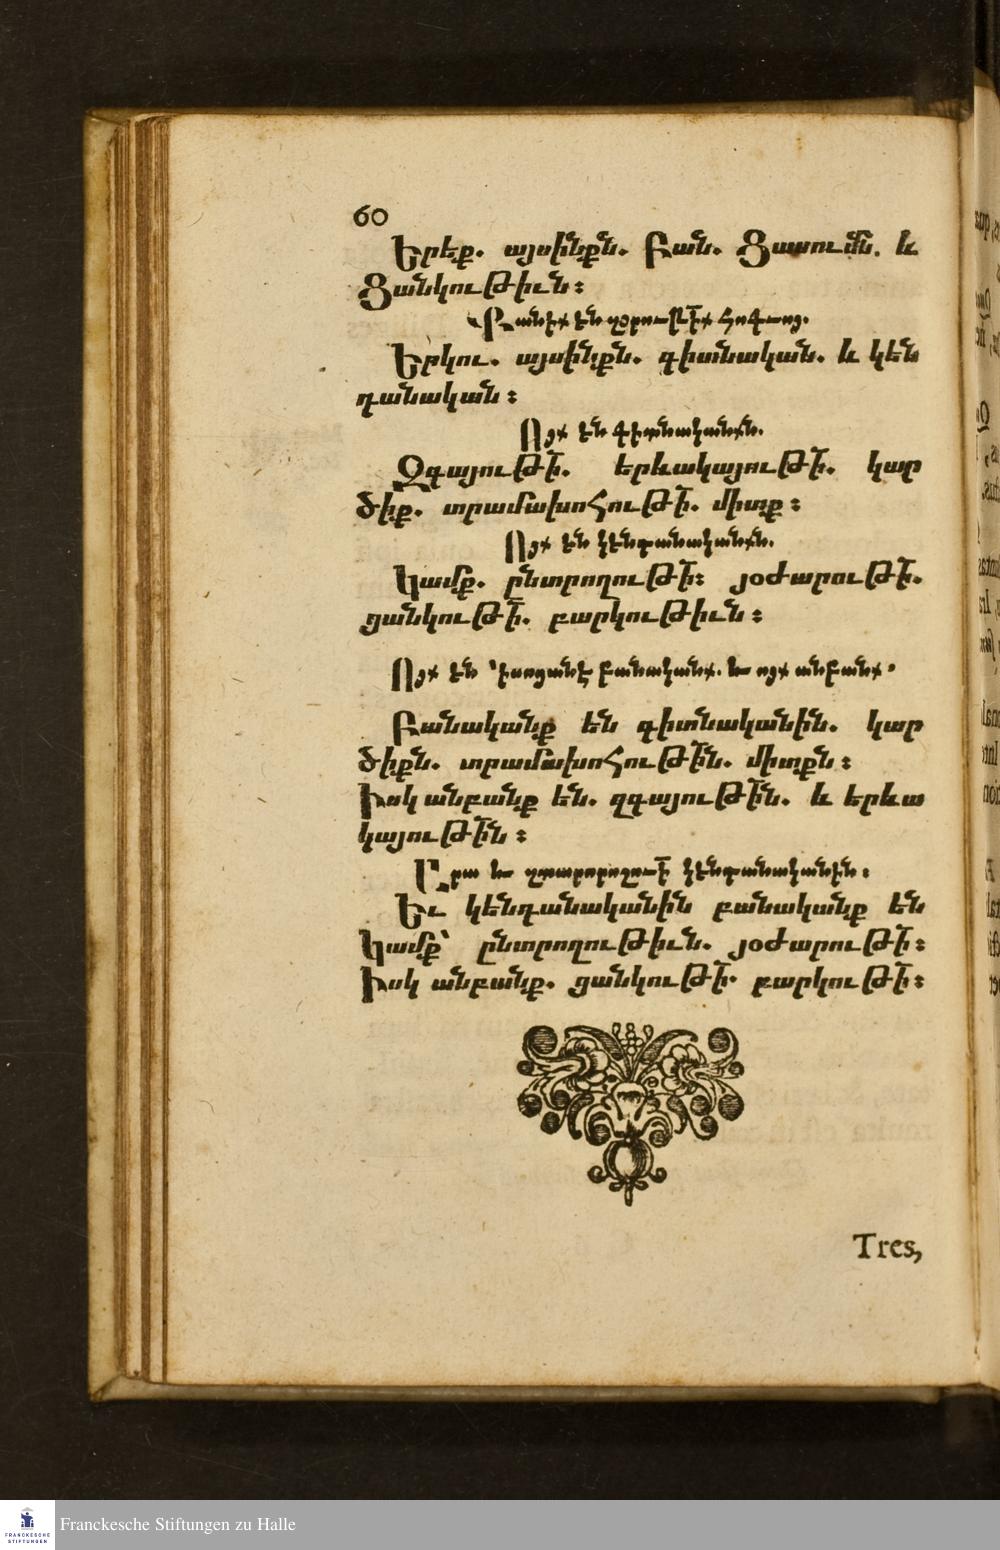 60
Երեք. այսինքն. Բան. Ցասումն. և
Ցանկութիւն:
Քանիք են զօրութիւնք հոգւոյ.
Երկու. այսինքն. գիտնական. և կեն
դանական:
Ոյք են գիտնականքն.
Զգայութի. երևակայութի. կար
ծիք. տրամախոհութի. միտք:
Ոյք են կենդանականքն.
Կամք. ընտրողութի: յօժարութի.
ցանկութի. բարկութիւն:
Ոյք են ՛ի սոցանէ բանականք. և ոյք անբանք.
Բանականք են գիտնականին. կար
ծիքն. տրամախոհութին. միտքն:
Իսկ անբանք են. զգայութին. և երևա
կայութին:
Ըստ կենդանականին:
Եւ կենդանականին բանականք են
կամք՝ ընտրողութիւն. յօժարութի:
Իսկ անբանք. ցանկութի. բարկութի:
Tres,
Franckesche Stiftungen zu Halle
FRANCKESCHE
STIFTUNGEN